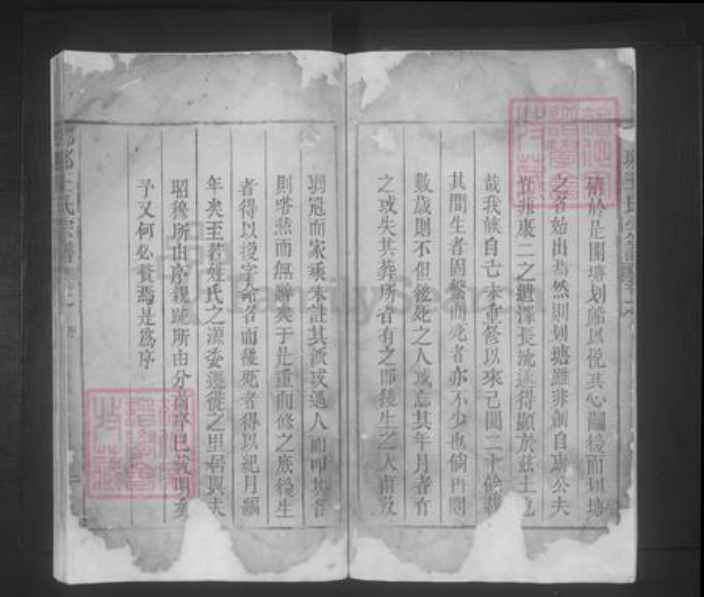 諸於是開塘划船以悅其心嗣後而划塘
之名始出焉然則划塘雖非創自東公夫
豈非東二之遺澤長流遂得顯於茲土也
哉我族自亡來重修以來已閱二十餘載
其間生者固繁而死者亦不少也倘再閱
數歲則不但後死之人或忘其年月者有
之或失其葬所者有之即後生之人甫及
弱冠而家乘未註其派或遇人而叩其名
則嗒然而無辭矣于是重而修之庶後生
者得以授字命名而後死者得以紀月編
年矣至若姓氏之源委遷徙之里居與夫
昭穆所由序親疏所由分前序已載明矣
予又何必贅焉是為序
王氏宗譜 卷之一
王氏宗譜